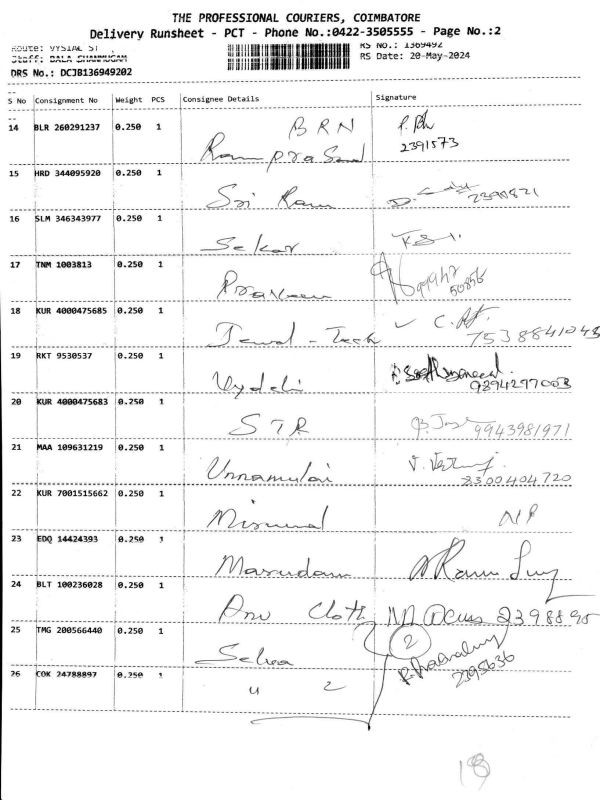 THE PROFESSIONAL COURIERS, COIMBATORE
Delivery Runsheet - PCT - Phone No.:0422-3505555 - Page No.:2
Route: VYSIAL ST
RS No.: 1369492
Staff: BALA SHANMUGAM
RS Date: 20-May-2024
DRS No.: DCJB136949202
S No Consignment No Weight PCS Consignee Details Signature
14 BLR 260291237 0.250 1 BRN
Ram prasad 2391573
15 HRD 344095920 0.250 1 Sri Ram
16 SLM 346343977 0.250 1 Sekar
17 TNM 1003813 0.250 1 Praveen 99947
50856
18 KUR 4000475685 0.250 1 Jewel - Tech
7538841043
19 RKT 9530537 0.250 1 Vydehi
9894297003
20 KUR 4000475683 0.250 1 STR 9943981971
21 MAA 109631219 0.250 1 Unnamulai
8300404720
22 KUR 7001515662 0.250 1
23 EDQ 14424393 0.250 1 Ram
24 BLT 100236028 0.250 1 Cloth 2398895
25 TMG 200566440 0.250 1 Selva 2
2395636
26 COK 24788897 0.250 1 u 2
18